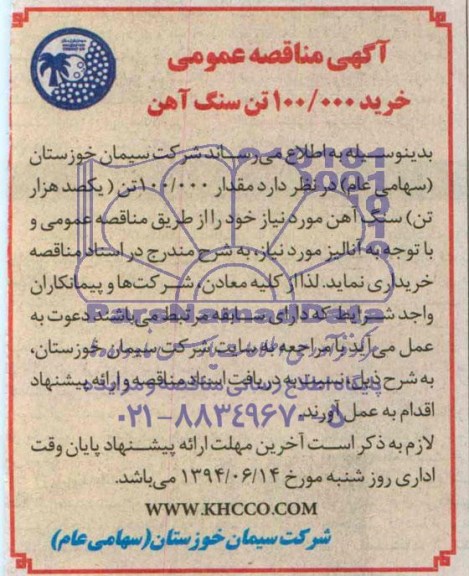 آگهی مناقصه عمومی
خرید ۱۰۰/۰۰۰ تن سنگ آهن
بدینوسیله به اطلاع می‌رساند شرکت سیمان خوزستان
(سهامی عام) در نظر دارد مقدار ۱۰۰/۰۰۰ تن ( یکصد هزار
تن) سنگ آهن مورد نیاز خود را از طریق مناقصه عمومی و
با توجه به آنالیز مورد نیاز، به شرح مندرج در اسناد مناقصه
خریداری نماید. لذا از کلیه معادن، شرکت‌ها و پیمانکاران
واجد شرایط که دارای سابقه مرتبط می‌باشند دعوت به
عمل می‌آید با مراجعه به سایت شرکت سیمان خوزستان،
به شرح ذیل، نسبت به دریافت اسناد مناقصه و ارائه پیشنهاد
اقدام به عمل آورند.
۰۲۱-۸۸۳۴۹۶۷۰
لازم به ذکر است آخرین مهلت ارائه پیشنهاد پایان وقت
اداری روز شنبه مورخ ۱۳۹۴/۰۶/۱۴ می‌باشد.
WWW.KHCCO.COM
شرکت سیمان خوزستان (سهامی عام)